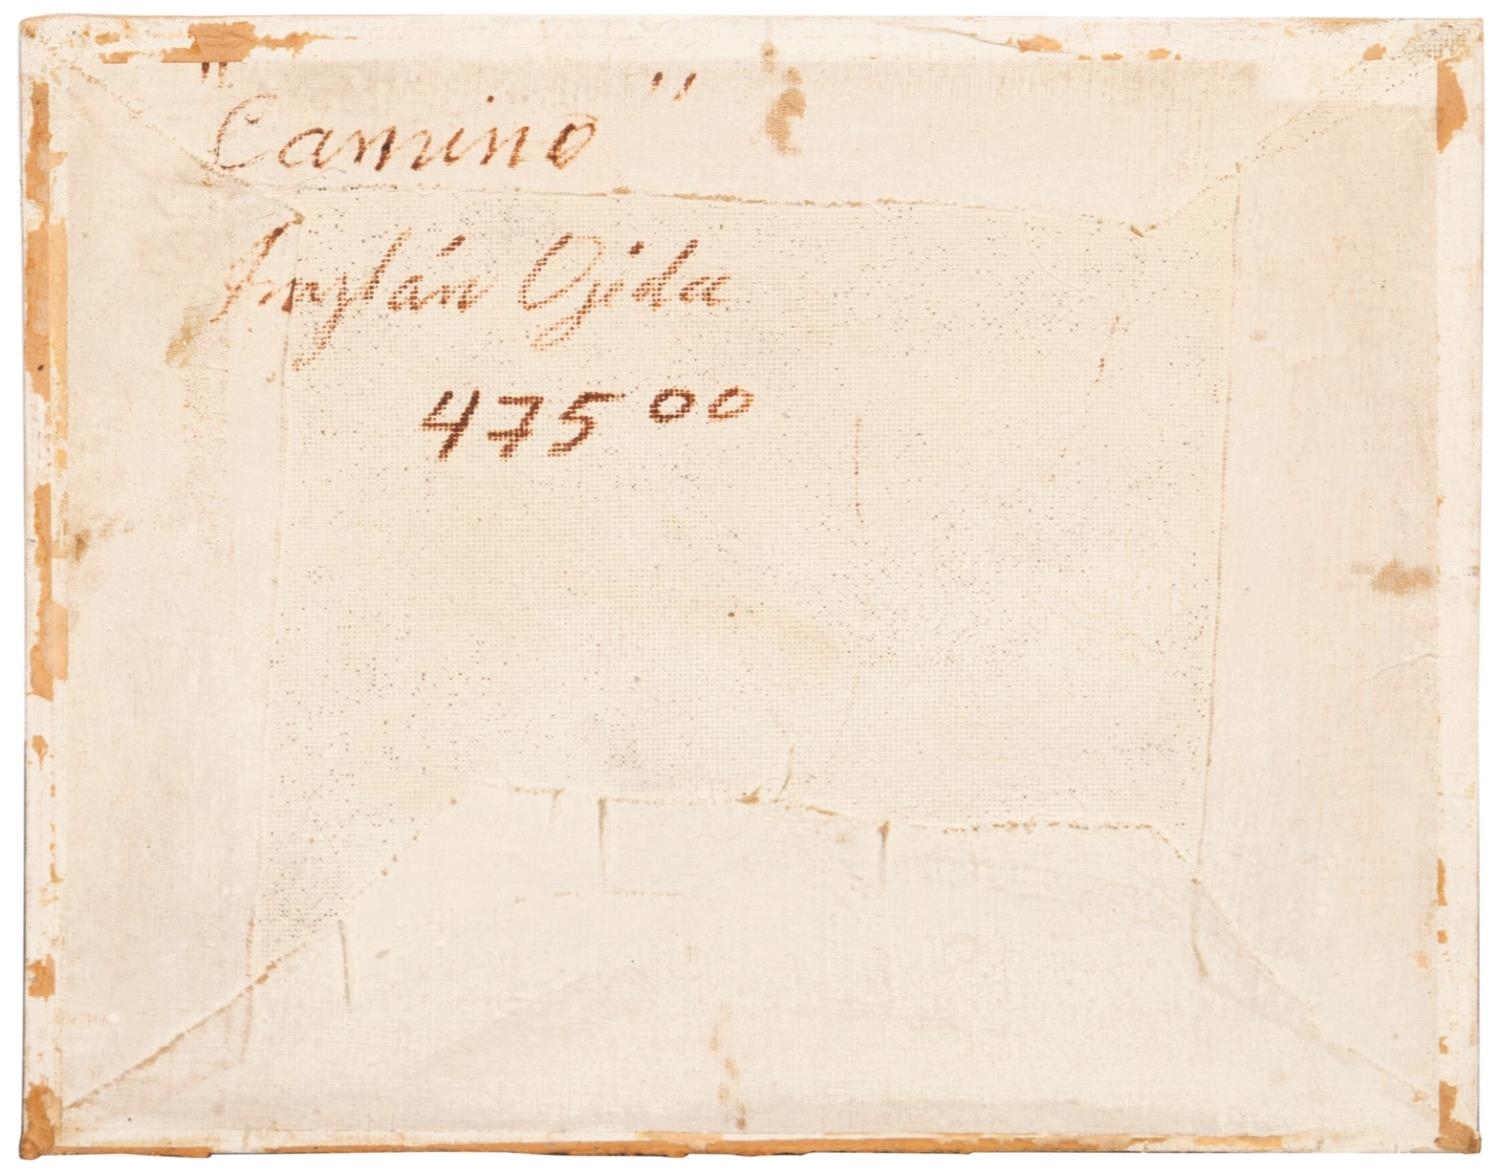 "Camino"
Froylán Ojeda
475 00